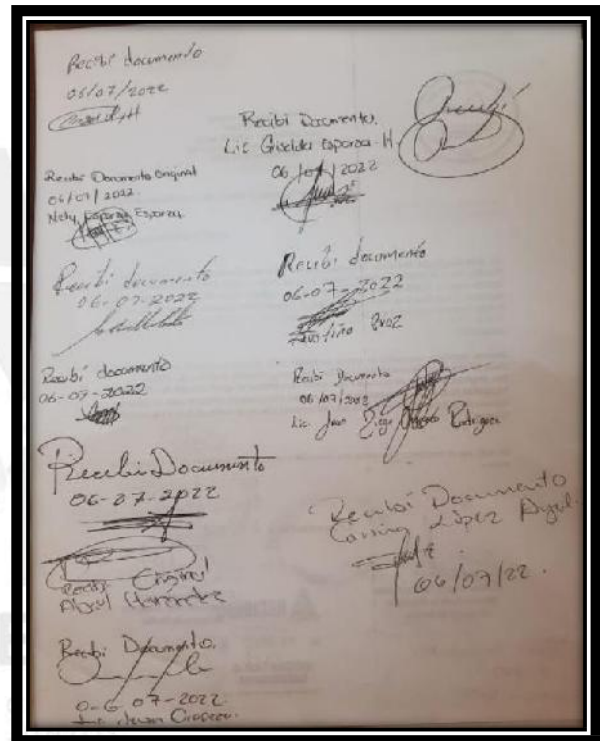 Recibí documento
06/07/2022
Recibí Documento.
Lic Griselda Esparza H
06/07/2022
Recibí
Recibi Documento Original
06/07/2022.
Nely Esparza Esparza
Recibí documento
06-07-2022
Recibí documento
06-07-2022
Recibí documento
06-07-2022
Recibi Documento
06/07/2022
Lic. Juan Diego Rodriguez
Recibi Documento
06-07-2022
Recibi Original
Abigail Hernández
Recibí Documento
López
06/07/22.
Recibi Documento.
0-6-07-2022